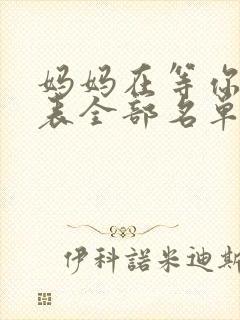 妈妈在等你
表全部名单
伊科諾米迪斯